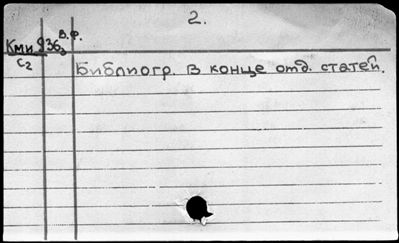 2.
В.Ф.
Кми 936з
C2
Библиогр. в конце отд. статей.